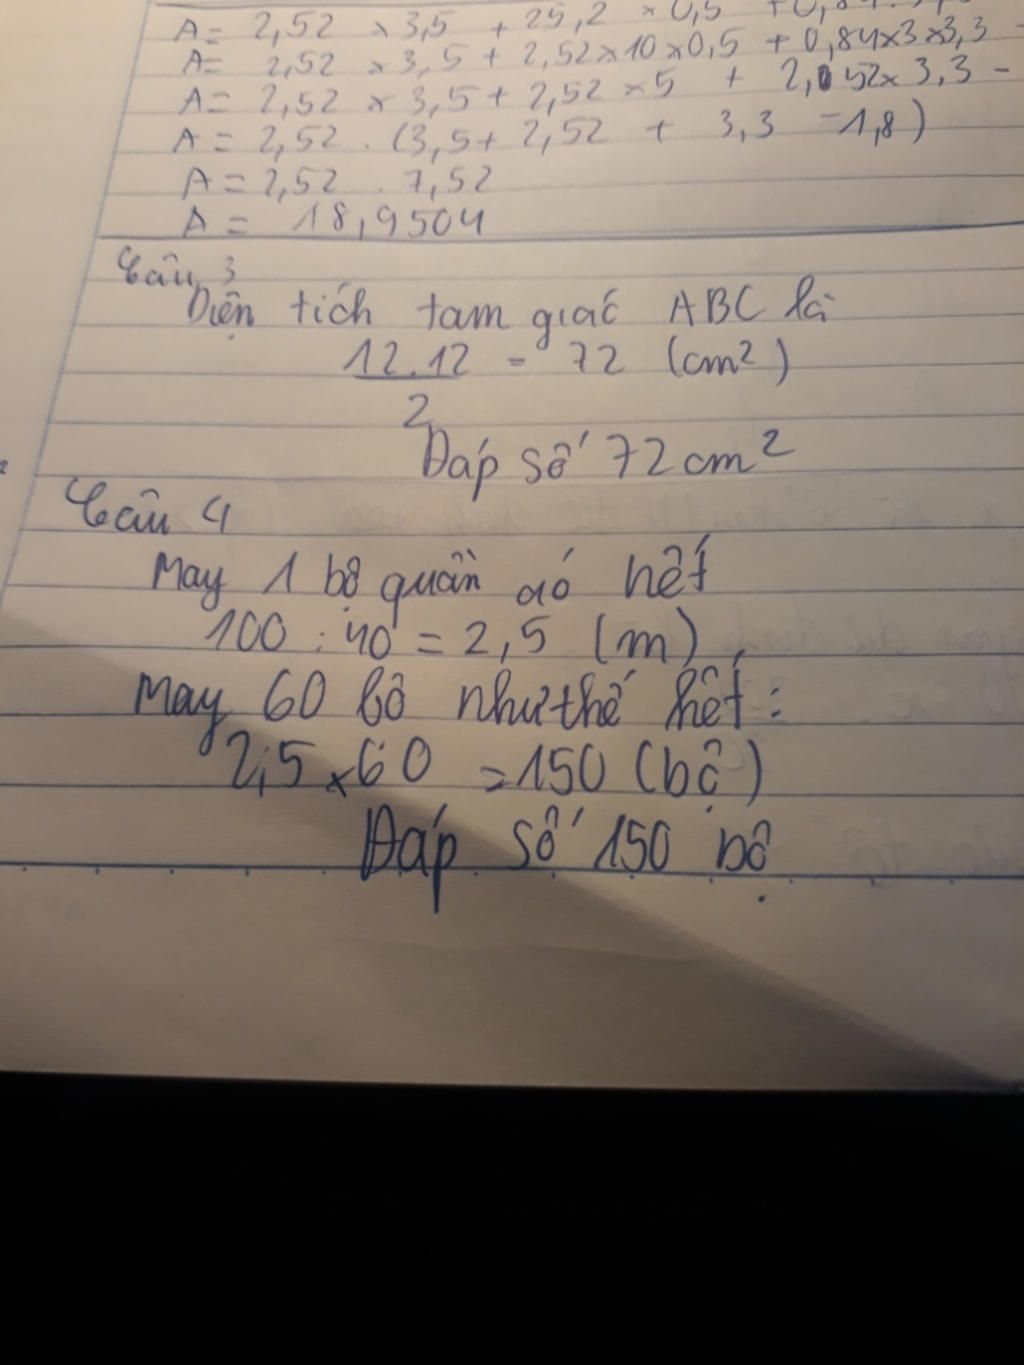 A = 2,52 × 3,5 + 25,2 × 0,5 + 0,84.
A = 2,52 × 3,5 + 2,52 × 10 × 0,5 + 0,84 × 3 × 3,3 -
A = 2,52 × 3,5 + 2,52 × 5 + 2,52 × 3,3 -
A = 2,52 . (3,5 + 2,52 + 3,3 - 1,8)
A = 2,52 . 7,52
A = 18,9504
Câu 3
Diện tích tam giác ABC là
12.12 = 72 (cm²)
2
Đáp số 72 cm²
Câu 4
May 1 bộ quần áo hết
100 : 40 = 2,5 (m)
May 60 bộ như thế hết :
2,5 × 60 = 150 (bộ)
Đáp số 150 bộ